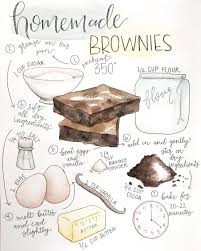 homemade
BROWNIES
① grease an 8x8
pan
preheat
350°
1 CUP SUGAR
1/2 CUP FLOUR
flour
② sift all
dry
ingredients
③ beat eggs
and
vanilla
BAKING
POWDER
⑤ add in and gently
stir in
dry
ingredients
COCOA
2 EGGS
1 t. VANILLA
④ melt butter
and cool
slightly
BUTTER
1/2 CUP BUTTER
bake for
20-22
minutes